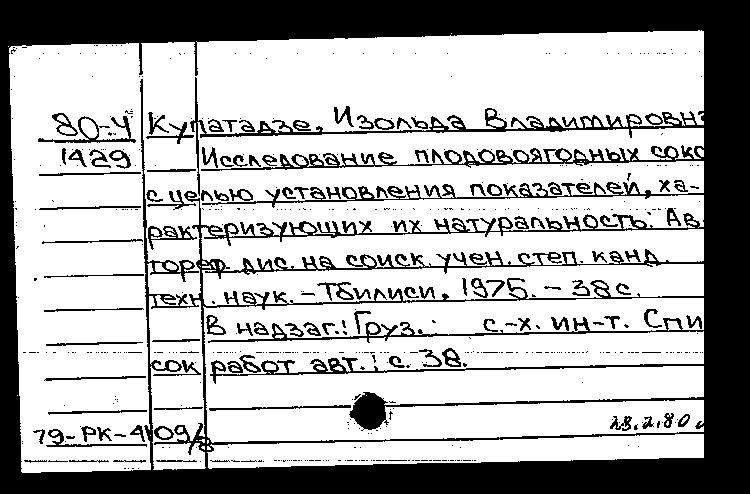 80-4 Купатадзе, Изольда Владимировна
1429 Исследование плодовоягодных соко
с целью установления показателей, ха-
рактеризующих их натуральность: Ав
тореф. дис. на соиск. учен. степ. канд.
техн. наук. - Тбилиси, 1975. - 38 с.
В надзаг.: Груз. с.-х. ин-т. Спи
сок работ авт.: с. 38.
79-РК-4109/8
28.2.80